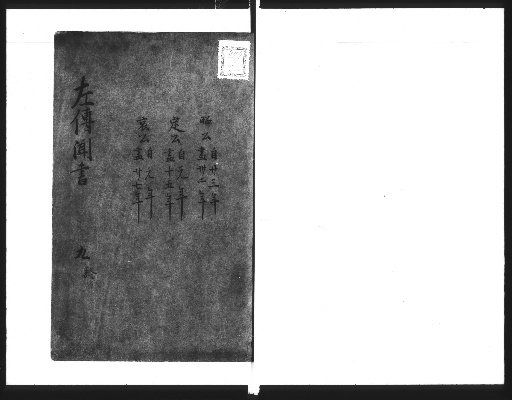 昭公 自廿三年
盡卅二年
定公 自元年
盡十五年
哀公 自元年
盡廿七年
左傳聞書
九終